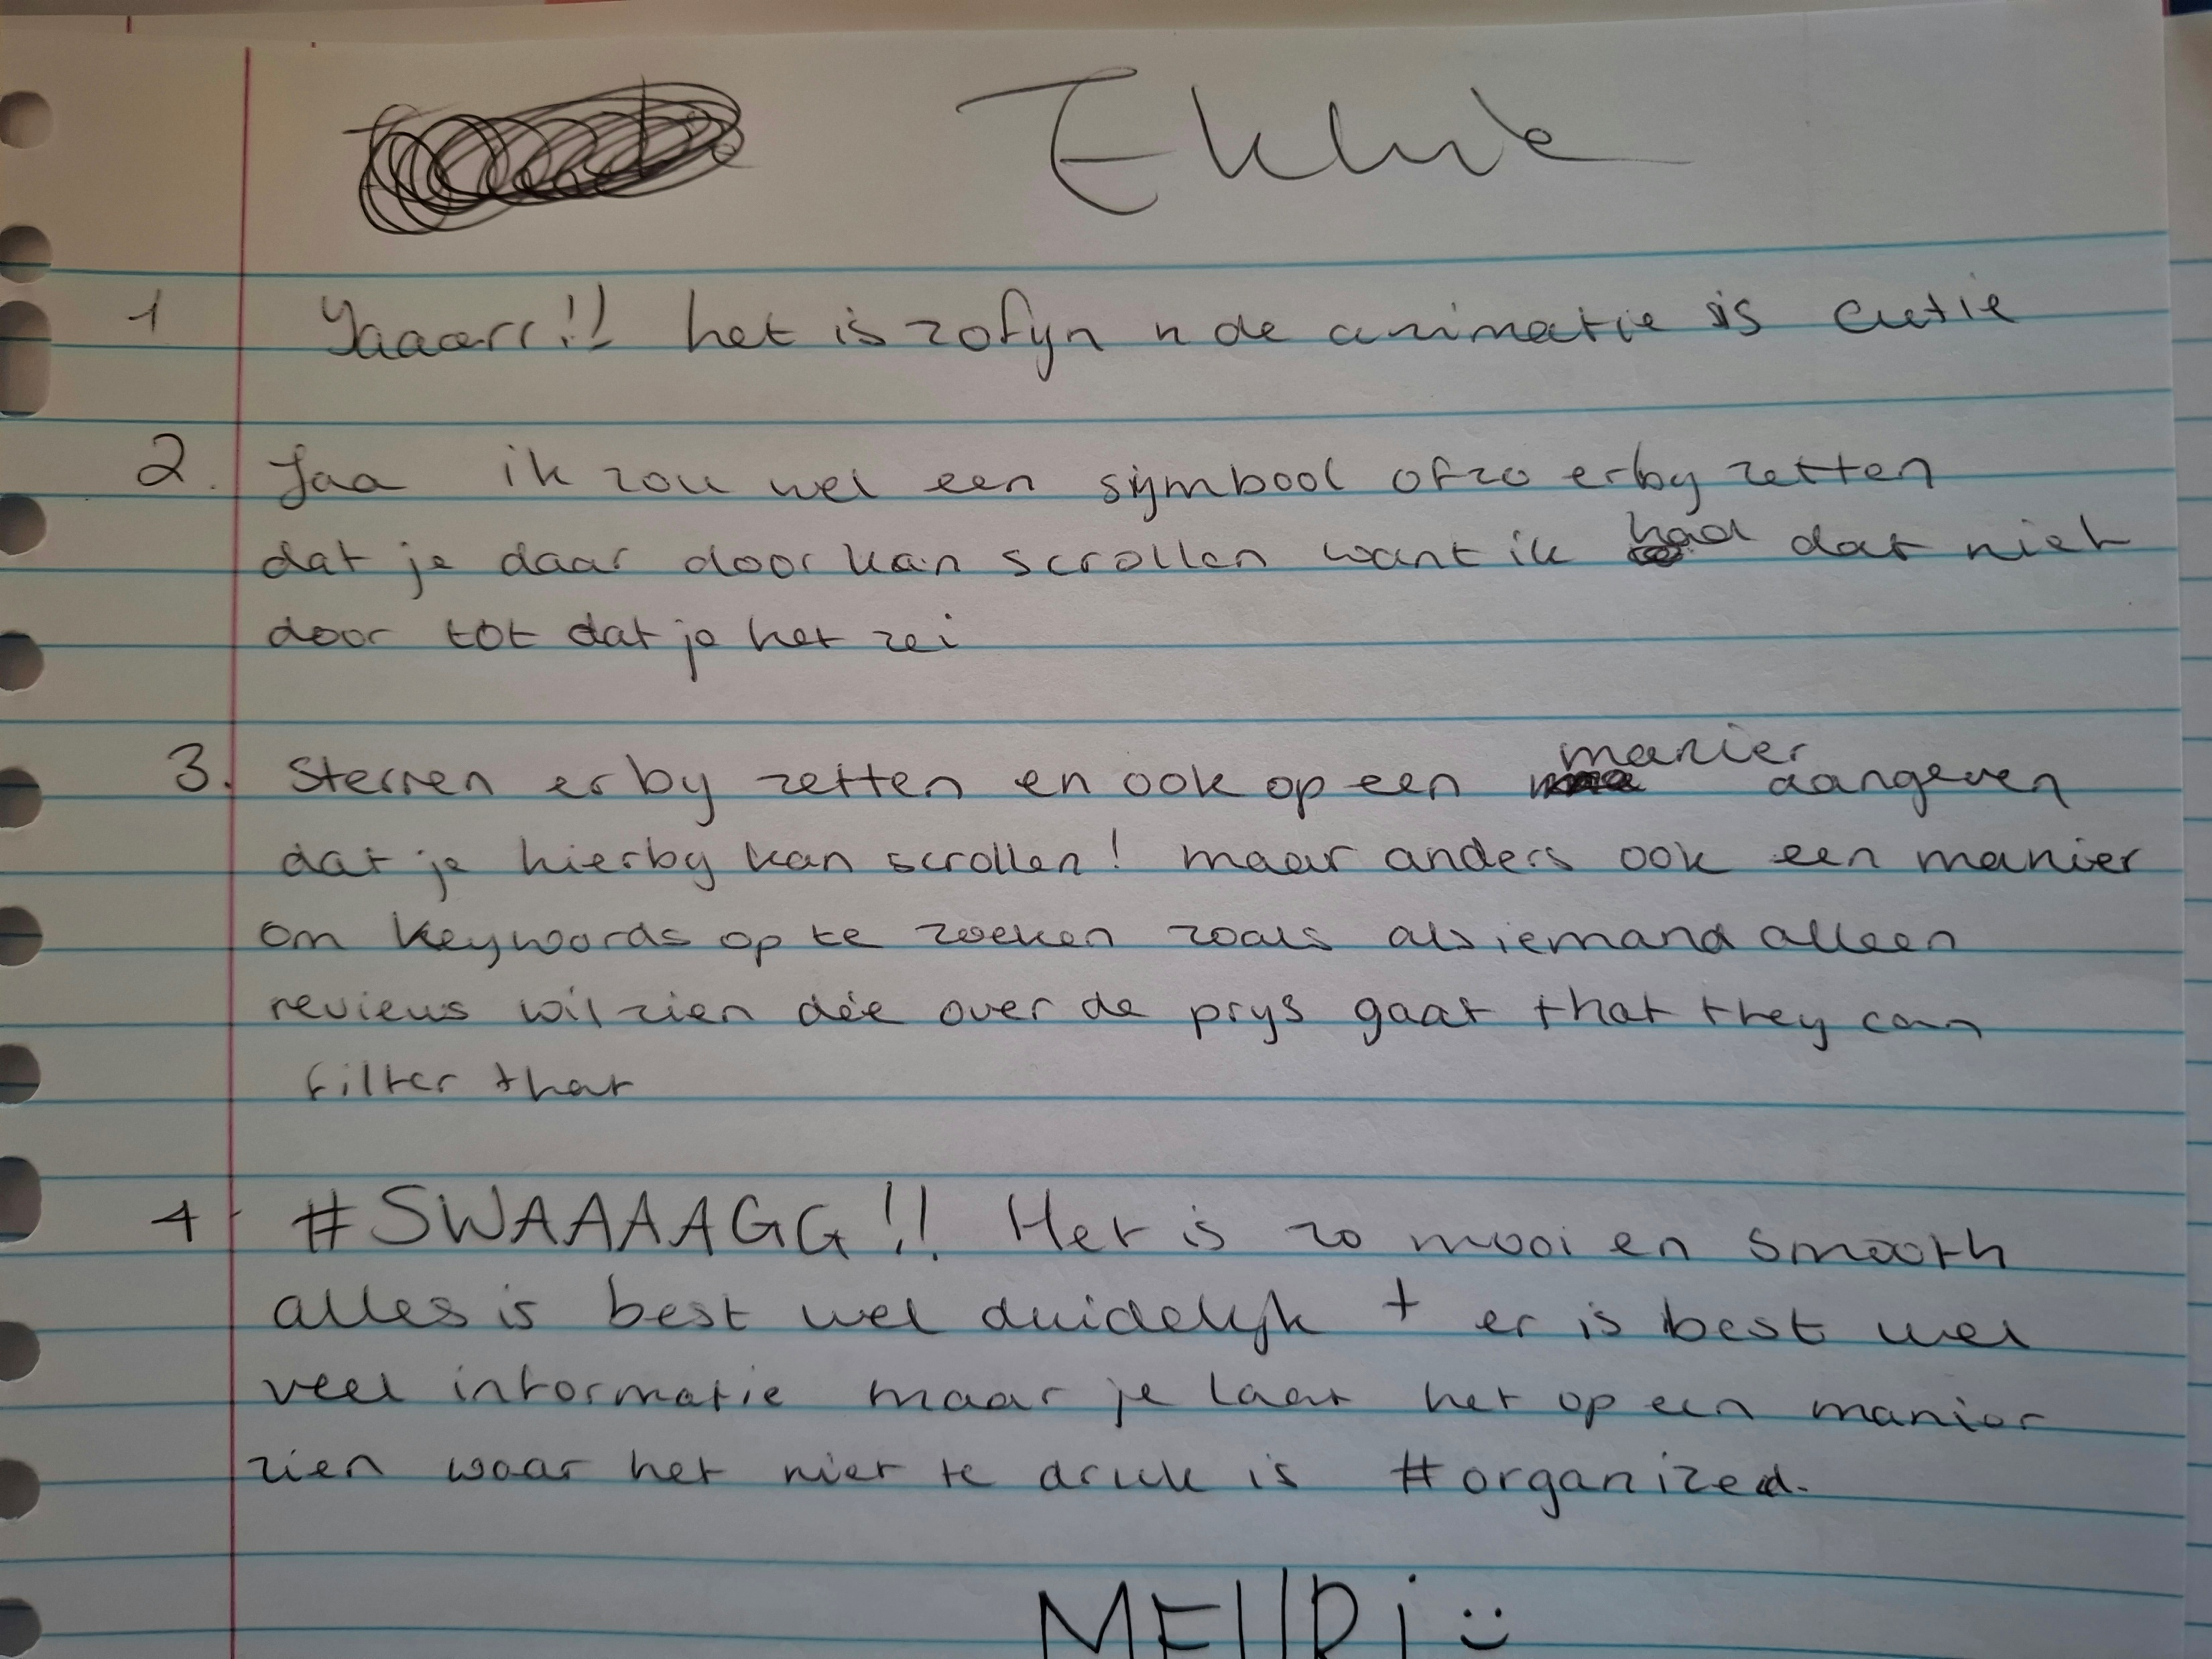 1 Yaaarr!! het is zo fijn n de animatie is cutie
2. Jaa ik zou wel een symbool ofzo erbij zetten
dat je daar door kan scrollen want ik had dat niet
door tot dat je het zei
3. Sterren erbij zetten en ook op een manier aangeven
dat je hierbij kan scrollen! maar anders ook een manier
om keywords op te zoeken zoals als iemand alleen
reviews wil zien die over de prijs gaat that they can
filter that
4 #SWAAAAGG!! Het is zo mooi en smooth
alles is best wel duidelijk + er is best wel
veel informatie maar je laat het op een manier
zien waar het niet te druk is #organized.